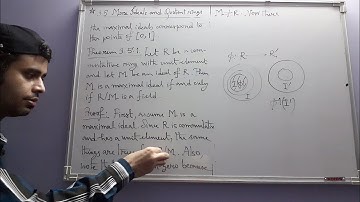 § 3.5 More Ideals and Quotient rings
the maximal ideals correspond to
the points of [0,1].
Theorem 3.5.1. Let R be a com-
mutative ring with unit element
and let M be an ideal of R. Then
M is a maximal ideal if and only
if R/M is a field.
Proof. First, assume M is a
maximal ideal. Since R is commutative
and has a unit element, the same
things are true /M. Also,
note zero because
M ≠ R. Now there
φ: R → R'
I'
I'
φ⁻¹(I')